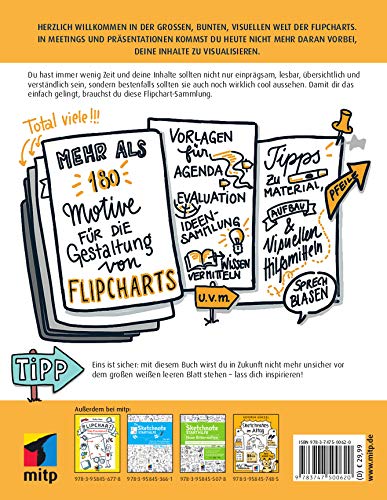 HERZLICH WILLKOMMEN IN DER GROSSEN, BUNTEN, VISUELLEN WELT DER FLIPCHARTS.
IN MEETINGS UND PRÄSENTATIONEN KOMMST DU HEUTE NICHT MEHR DARAN VORBEI,
DEINE INHALTE ZU VISUALISIEREN.
Du hast immer wenig Zeit und deine Inhalte sollten nicht nur einprägsam, lesbar, übersichtlich und
verständlich sein, sondern bestenfalls sollten sie auch noch wirklich cool aussehen. Damit dir das
einfach gelingt, brauchst du diese Flipchart-Sammlung.
Total viele!!!
MEHR ALS
180
Motive
FÜR DIE
Gestaltung
von
FLIPCHARTS
VORLAGEN
für
AGENDA
EVALUATION
IDEEN-
SAMMLUNG
WISSEN
VERMITTELN
u.v.m.
Tipps
ZU
MATERIAL,
AUFBAU
&
Visuellen
Hilfsmitteln
PFEILE
SPRECH
BLASEN
TIPP
Eins ist sicher: mit diesem Buch wirst du in Zukunft nicht mehr unsicher vor
dem großen weißen leeren Blatt stehen – lass dich inspirieren!
Außerdem bei mitp:
FLIPCHART
Sketchnote
STARTHILFE
Sketchnote
STARTHILFE
Neue Bilderwelten
Sketchnotes
im Alltag
978-3-95845-677-8
978-3-95845-366-1
978-3-95845-507-8
978-3-95845-748-5
mitp
www.mitp.de
ISBN 978-3-7475-0062-0
(D) € 29,99
9 783747 500620